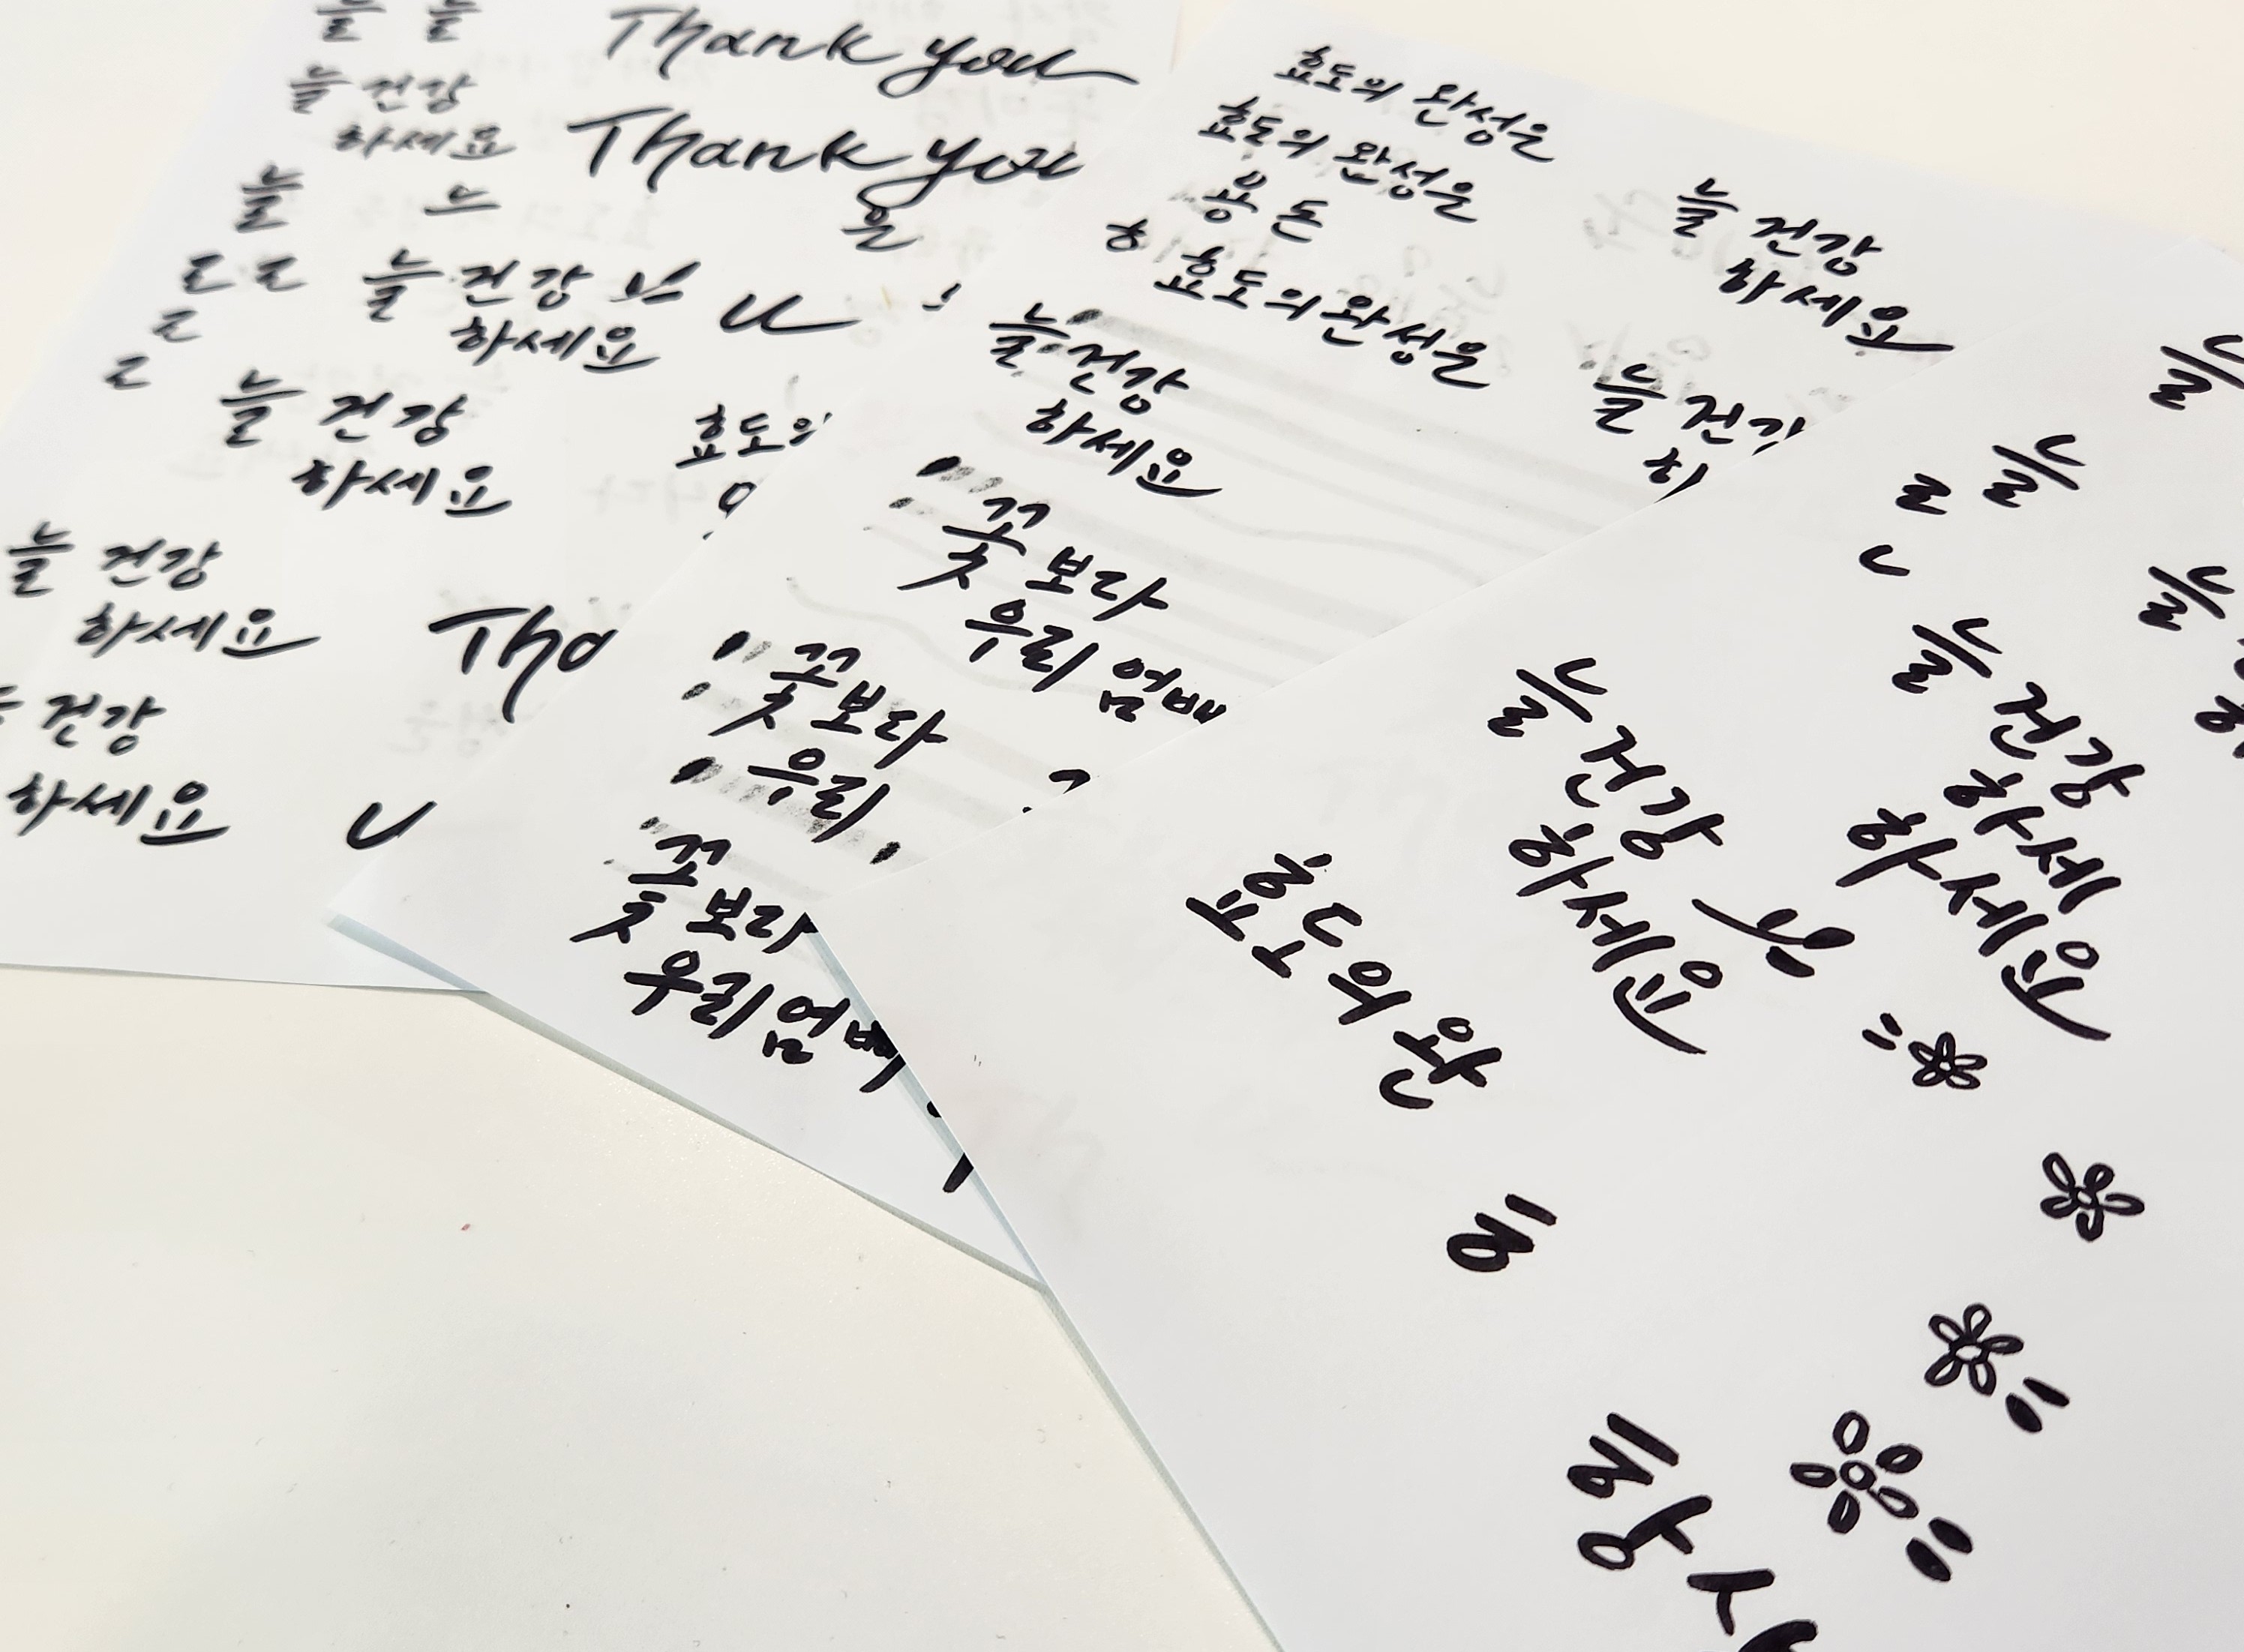 늘 늘
Thank you
늘 건강
하세요
Thank you
늘 느
을
ㄹ ㄹ
늘 건강
하세요
ㄹ
ㄹ
늘 건강
하세요
효도의
늘 건강
하세요
Tho
건강
하세요
효도의 완성은
효도의 완성은
용돈
효도의 완성은
늘 건강
하세요
늘 건강
하세요
늘 건
꽃보다
우리 엄마
꽃보다
우리
꽃보다
우리 엄마
늘
늘
ㄹ
늘
늘 건강
하세
하세요
늘 건강
하세요
효도의 완
항상